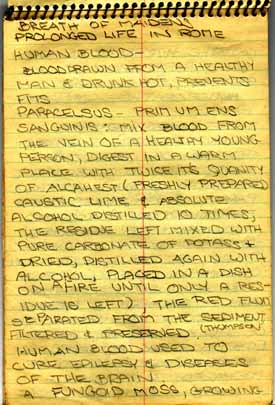 BREATH OF MAIDENS
PROLONGED LIFE IN ROME
HUMAN BLOOD—
BLOOD DRAWN FROM A HEALTHY
MAN & DRUNK HOT, PREVENTS
FITS
PARACELSUS - PRIMUM ENS
SANGUINIS: MIX BLOOD FROM
THE VEIN OF A HEALTHY YOUNG
PERSON, DIGEST IN A WARM
PLACE WITH TWICE ITS QUANITY
OF ALCAHEST (FRESHLY PREPARED
CAUSTIC LIME & ABSOLUTE
ALCOHOL DISTILLED 10 TIMES,
THE RESIDUE LEFT MIXED WITH
PURE CARBONATE OF POTASS &
DRIED, DISTILLED AGAIN WITH
ALCOHOL, PLACED IN A DISH
ON A FIRE UNTIL ONLY A RES-
IDUE IS LEFT) THE RED FLUID
SEPARATED FROM THE SEDIMENT
FILTERED & PRESERVED (THOMPSON
HUMAN BLOOD USED TO
CURE EPILEPSY & DISEASES
OF THE BRAIN.
A FUNGOID MOSS, GROWING